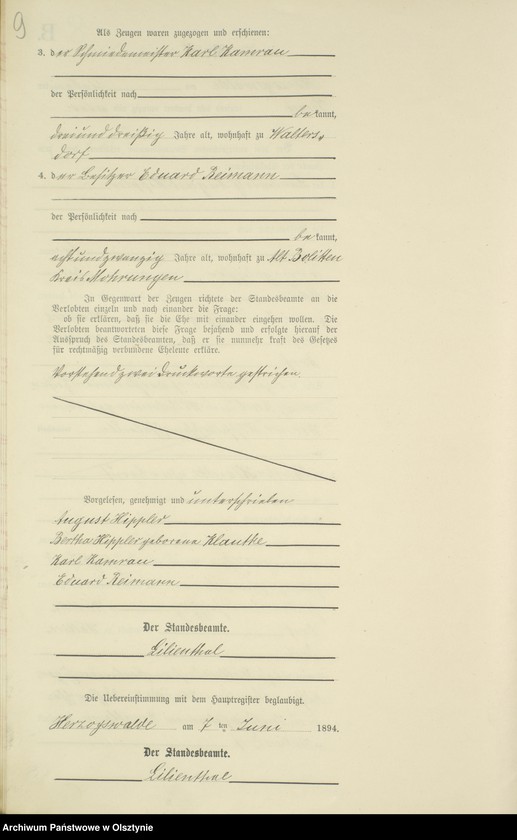 9
Als Zeugen waren zugezogen und erschienen:
3. der Schmiedemeister Karl Kamrau
der Persönlichkeit nach
bekannt,
dreiunddreißig Jahre alt, wohnhaft zu Walters-
dorf
4. der Besitzer Eduard Reimann
der Persönlichkeit nach
bekannt,
achtundzwanzig Jahre alt, wohnhaft zu Alt Bolitten
Kreis Mohrungen
In Gegenwart der Zeugen richtete der Standesbeamte an die
Verlobten einzeln und nach einander die Frage:
ob sie erklären, daß sie die Ehe mit einander eingehen wollen. Die
Verlobten beantworteten diese Frage bejahend und erfolgte hierauf der
Ausspruch des Standesbeamten, daß er sie nunmehr kraft des Gesetzes
für rechtmäßig verbundene Eheleute erkläre.
Vorstehend zwei Druckworte gestrichen.
Vorgelesen, genehmigt und unterschrieben
August Hippler
Bertha Hippler geborene Klautke
Karl Kamrau
Eduard Reimann
Der Standesbeamte.
Lilienthal
Die Uebereinstimmung mit dem Hauptregister beglaubigt.
Herzogswalde am 7 ten Juni 1894.
Der Standesbeamte.
Lilienthal
Archiwum Państwowe w Olsztynie